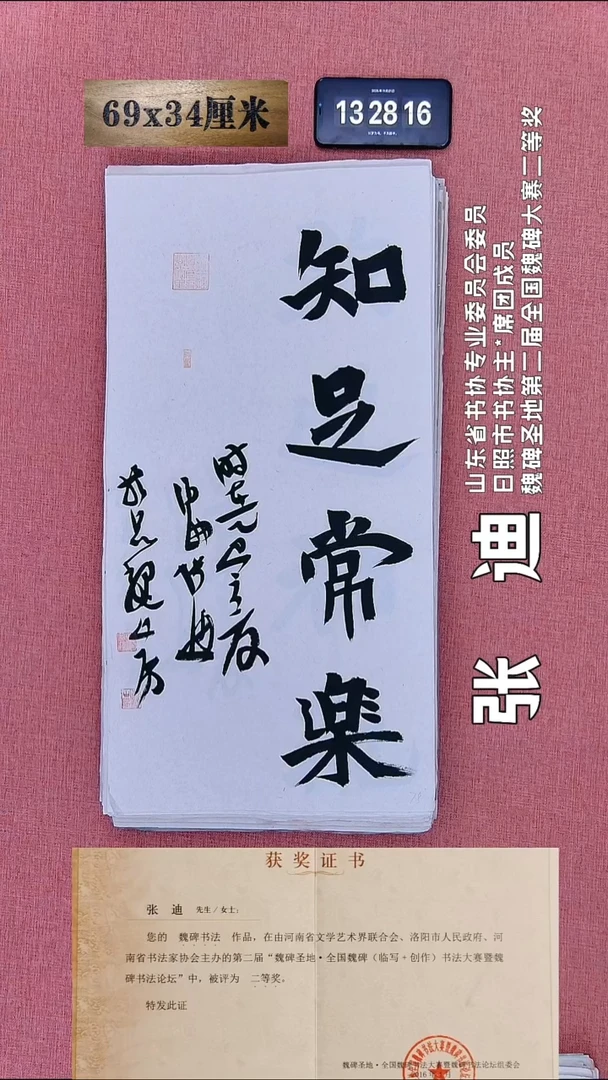 69x34厘米
13 28 16
知足常樂
山东省书协专业委员会委员
日照市书协主*席团成员
魏碑圣地第二届全国魏碑大赛二等奖
张 迪
获奖证书
张 迪 先生/女士:
您的 魏碑书法 作品,在由河南省文学艺术界联合会、洛阳市人民政府、河
南省书法家协会主办的第二届“魏碑圣地·全国魏碑（临写+创作）书法大赛暨魏
碑书法论坛”中,被评为 二等奖。
特发此证
魏碑圣地·全国魏碑书法大赛暨魏碑书法论坛组委会